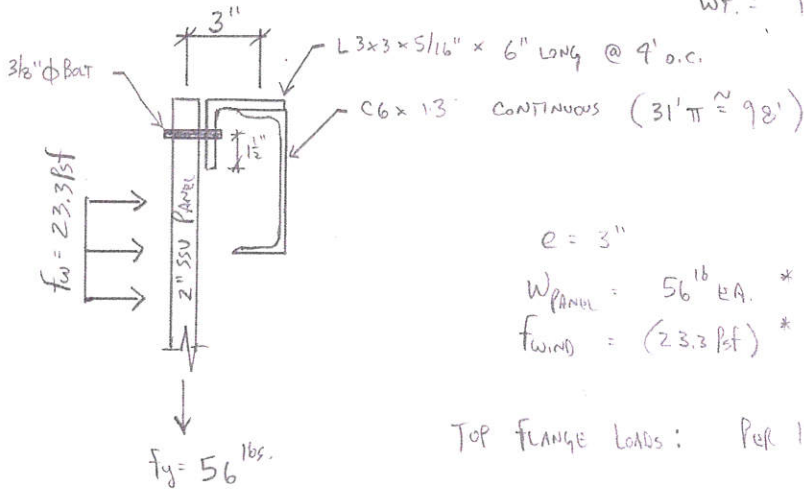 WT. -
3"
L 3x3 x 5/16" x 6" LONG @ 4' O.C.
3/8" ϕ BOLT
C6 x 13 CONTINUOUS (31' π ≈ 98')
1 1/2"
fw = 23.3 Psf
2" SSV PANEL
e = 3"
W PANEL = 56 lb EA. *
f WIND = (23.3 Psf) *
TOP FLANGE LOADS: PER 1
fy = 56 lbs.